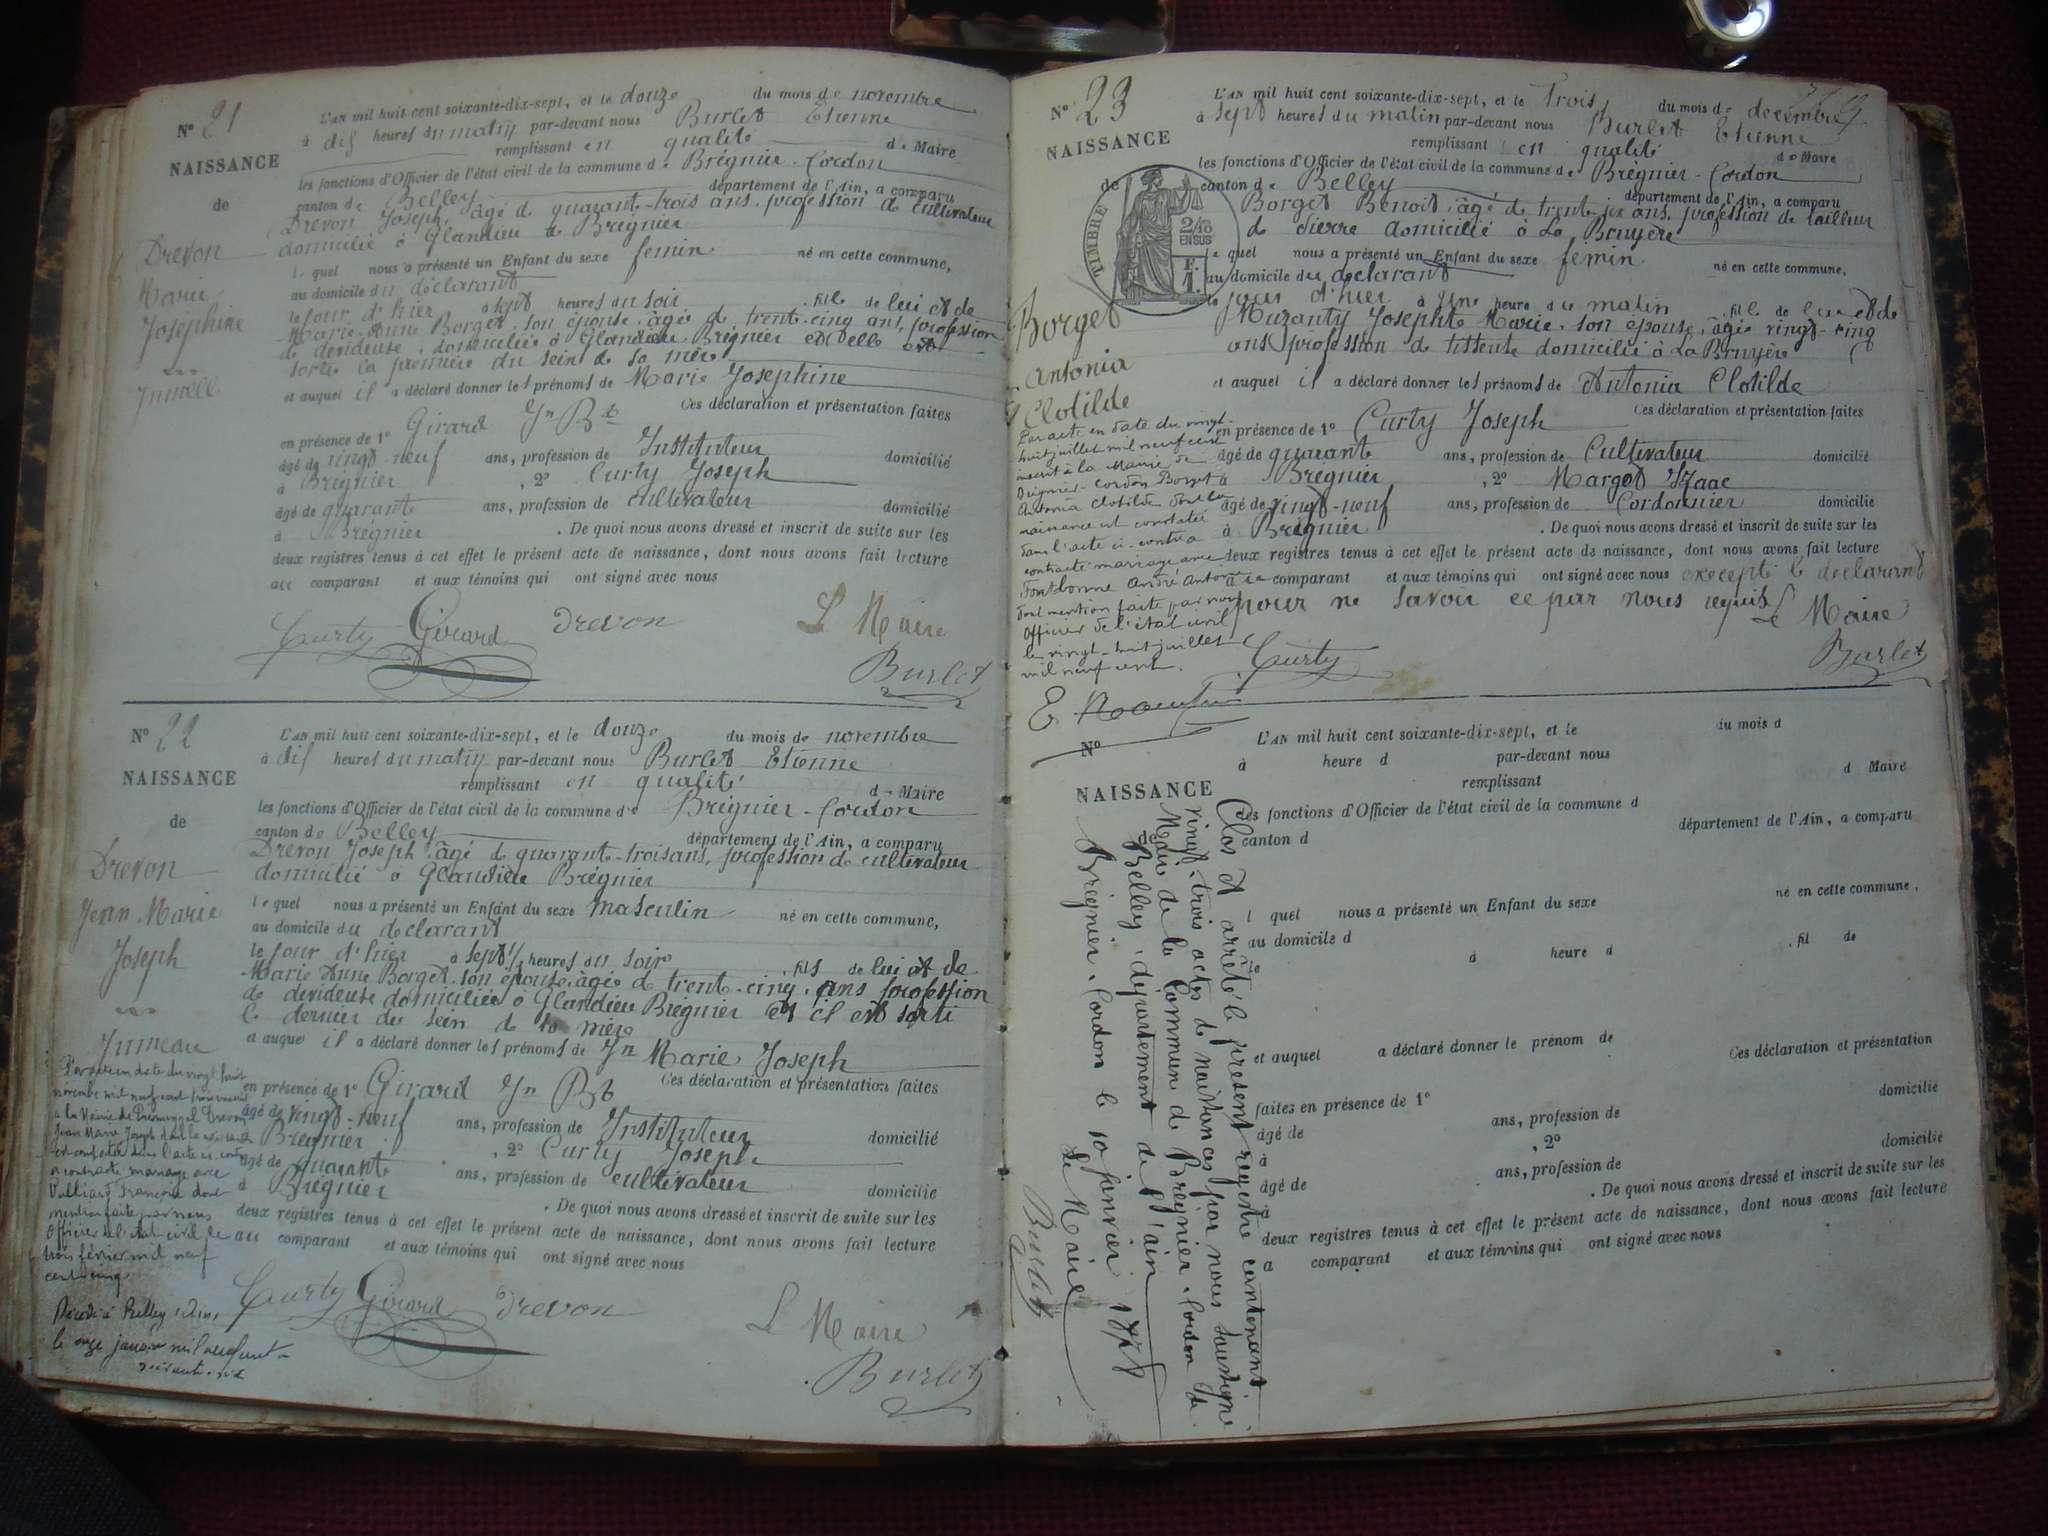 N° 21
NAISSANCE
de
Drevon
Marie
Joséphine
Jumelle
L'AN mil huit cent soixante-dix-sept, et le douze du mois de novembre
à dix heures du matin par-devant nous Burlet Etienne
remplissant en qualité de Maire
les fonctions d'Officier de l'état civil de la commune de Brégnier-Cordon
canton de Belley département de l'Ain, a comparu
Drevon Joseph, âgé de quarant-trois ans, profession de cultivateur
domicilié à Glandieu de Brégnier
lequel nous a présenté un Enfant du sexe femin né en cette commune,
au domicile du déclarant
le jour d'hier à sept heures du soir, fille de lui et de
Marie-Anne Borget, son épouse, âgée de trent-cinq ans, profession
de devideuse, domiciliée à Glandieu Brégnier et elle est
sortie la première du sein de sa mère
et auquel il a déclaré donner les prénoms de Marie Josephine
Ces déclaration et présentation faites
en présence de 1° Girard Jn Bte
âgé de vingt-neuf ans, profession de Instituteur domicilié
à Brégnier, 2° Curty Joseph
âgé de quarante ans, profession de cultivateur domicilié
à Brégnier. De quoi nous avons dressé et inscrit de suite sur les
deux registres tenus à cet effet le présent acte de naissance, dont nous avons fait lecture
au comparant et aux témoins qui ont signé avec nous
Curty Girard Drevon Le Maire
Burlet
N° 22
NAISSANCE
de
Drevon
Jean Marie
Joseph
Jumeau
L'AN mil huit cent soixante-dix-sept, et le douze du mois de novembre
à dix heures du matin par-devant nous Burlet Etienne
remplissant en qualité de Maire
les fonctions d'Officier de l'état civil de la commune de Brégnier-Cordon
canton de Belley département de l'Ain, a comparu
Drevon Joseph, âgé de quarant-trois ans, profession de cultivateur
domicilié à Glandieu Brégnier
lequel nous a présenté un Enfant du sexe masculin né en cette commune,
au domicile du declarant
le jour d'hier à sept 1/2 heures du soir, fils de lui et de
Marie Anne Borget, son épouse, âgée de trent-cinq, ans profession
de devideuse domiciliée à Glandieu Brégnier et il est sorti
le dernier du sein de sa mère
et auquel il a déclaré donner les prénoms de Jn Marie Joseph
Ces déclaration et présentation faites
en présence de 1° Girard Jn Bte
âgé de vingt-neuf ans, profession de Instituteur domicilié
à Brégnier, 2° Curty Joseph
âgé de quarante ans, profession de cultivateur domicilié
à Brégnier. De quoi nous avons dressé et inscrit de suite sur les
deux registres tenus à cet effet le présent acte de naissance, dont nous avons fait lecture
au comparant et aux témoins qui ont signé avec nous
Par acte en date du vingt-huit
novembre mil neuf cent
à la Mairie de Drevon
Jean Marie Joseph dont la
est constatée dans l'acte ci-contre
a contracté mariage avec
Françoise dont
mention faite par nous
Officier de l'état civil le
trois février mil neuf
cent cinq
Décédé à Belley (Ain)
le onze janvier mil neuf cent
soixante-six
Curty Girard Drevon Le Maire
Burlet
N° 23
NAISSANCE
de
TIMBRE
2/10
EN SUS
F.
1.
Borget
Antonia
Clotilde
L'AN mil huit cent soixante-dix-sept, et le Trois du mois de décembre
à sept heures du matin par-devant nous Burlet Etienne
remplissant en qualité de Maire
les fonctions d'Officier de l'état civil de la commune de Brégnier-Cordon
canton de Belley département de l'Ain, a comparu
Borget Benoit, âgé de trente six ans, profession de tailleur
de Pierre domicilié à La Bruyère
lequel nous a présenté un Enfant du sexe femin né en cette commune,
au domicile du declarant
le jour d'hier à Une heure du matin, fille de lui et de
Muzanty Josephte Marie, son épouse, âgée vingt-cinq
ans profession de tisseuse domicilié à La Bruyère
et auquel il a déclaré donner les prénoms de Antonia Clotilde
Ces déclaration et présentation faites
en présence de 1° Curty Joseph
âgé de quarante ans, profession de Cultivateur domicilié
à Brégnier, 2° Margot Isaac
âgé de vingt-neuf ans, profession de Cordonnier domicilié
à Brégnier. De quoi nous avons dressé et inscrit de suite sur les
deux registres tenus à cet effet le présent acte de naissance, dont nous avons fait lecture
au comparant et aux témoins qui ont signé avec nous excepté le declarant
pour ne savoir ce par nous requis Le Maire
Curty Burlet
Par acte en date du vingt-
huit juillet mil neuf cent
inscrit à la Mairie de
Brégnier-Cordon Borget
Antonia Clotilde dont la
naissance est constatée
dans l'acte ci-contre a
contracté mariage avec
Fontbonne André Antoine
dont mention faite par nous
Officier de l'état civil
le vingt-huit juillet
mil neuf cent.
N°
NAISSANCE
de
L'AN mil huit cent soixante-dix-sept, et le du mois d
à heure d par-devant nous
remplissant d Maire
les fonctions d'Officier de l'état civil de la commune d
canton d département de l'Ain, a comparu
l quel nous a présenté un Enfant du sexe né en cette commune,
au domicile d
le à heure d, fil de
et auquel a déclaré donner le prénom de
Ces déclaration et présentation
faites en présence de 1°
âgé de ans, profession de domicilié
à, 2°
âgé de ans, profession de domicilié
à. De quoi nous avons dressé et inscrit de suite sur les
deux registres tenus à cet effet le présent acte de naissance, dont nous avons fait lecture
a comparant et aux témoins qui ont signé avec nous
Clos et arrêté le présent registre contenant
vingt-trois actes de naissances par nous soussigné
Maire de la Commune de Brégnier-Cordon de
Belley, département de l'Ain
Brégnier-Cordon le 10 janvier 1878
Le Maire
Burlet